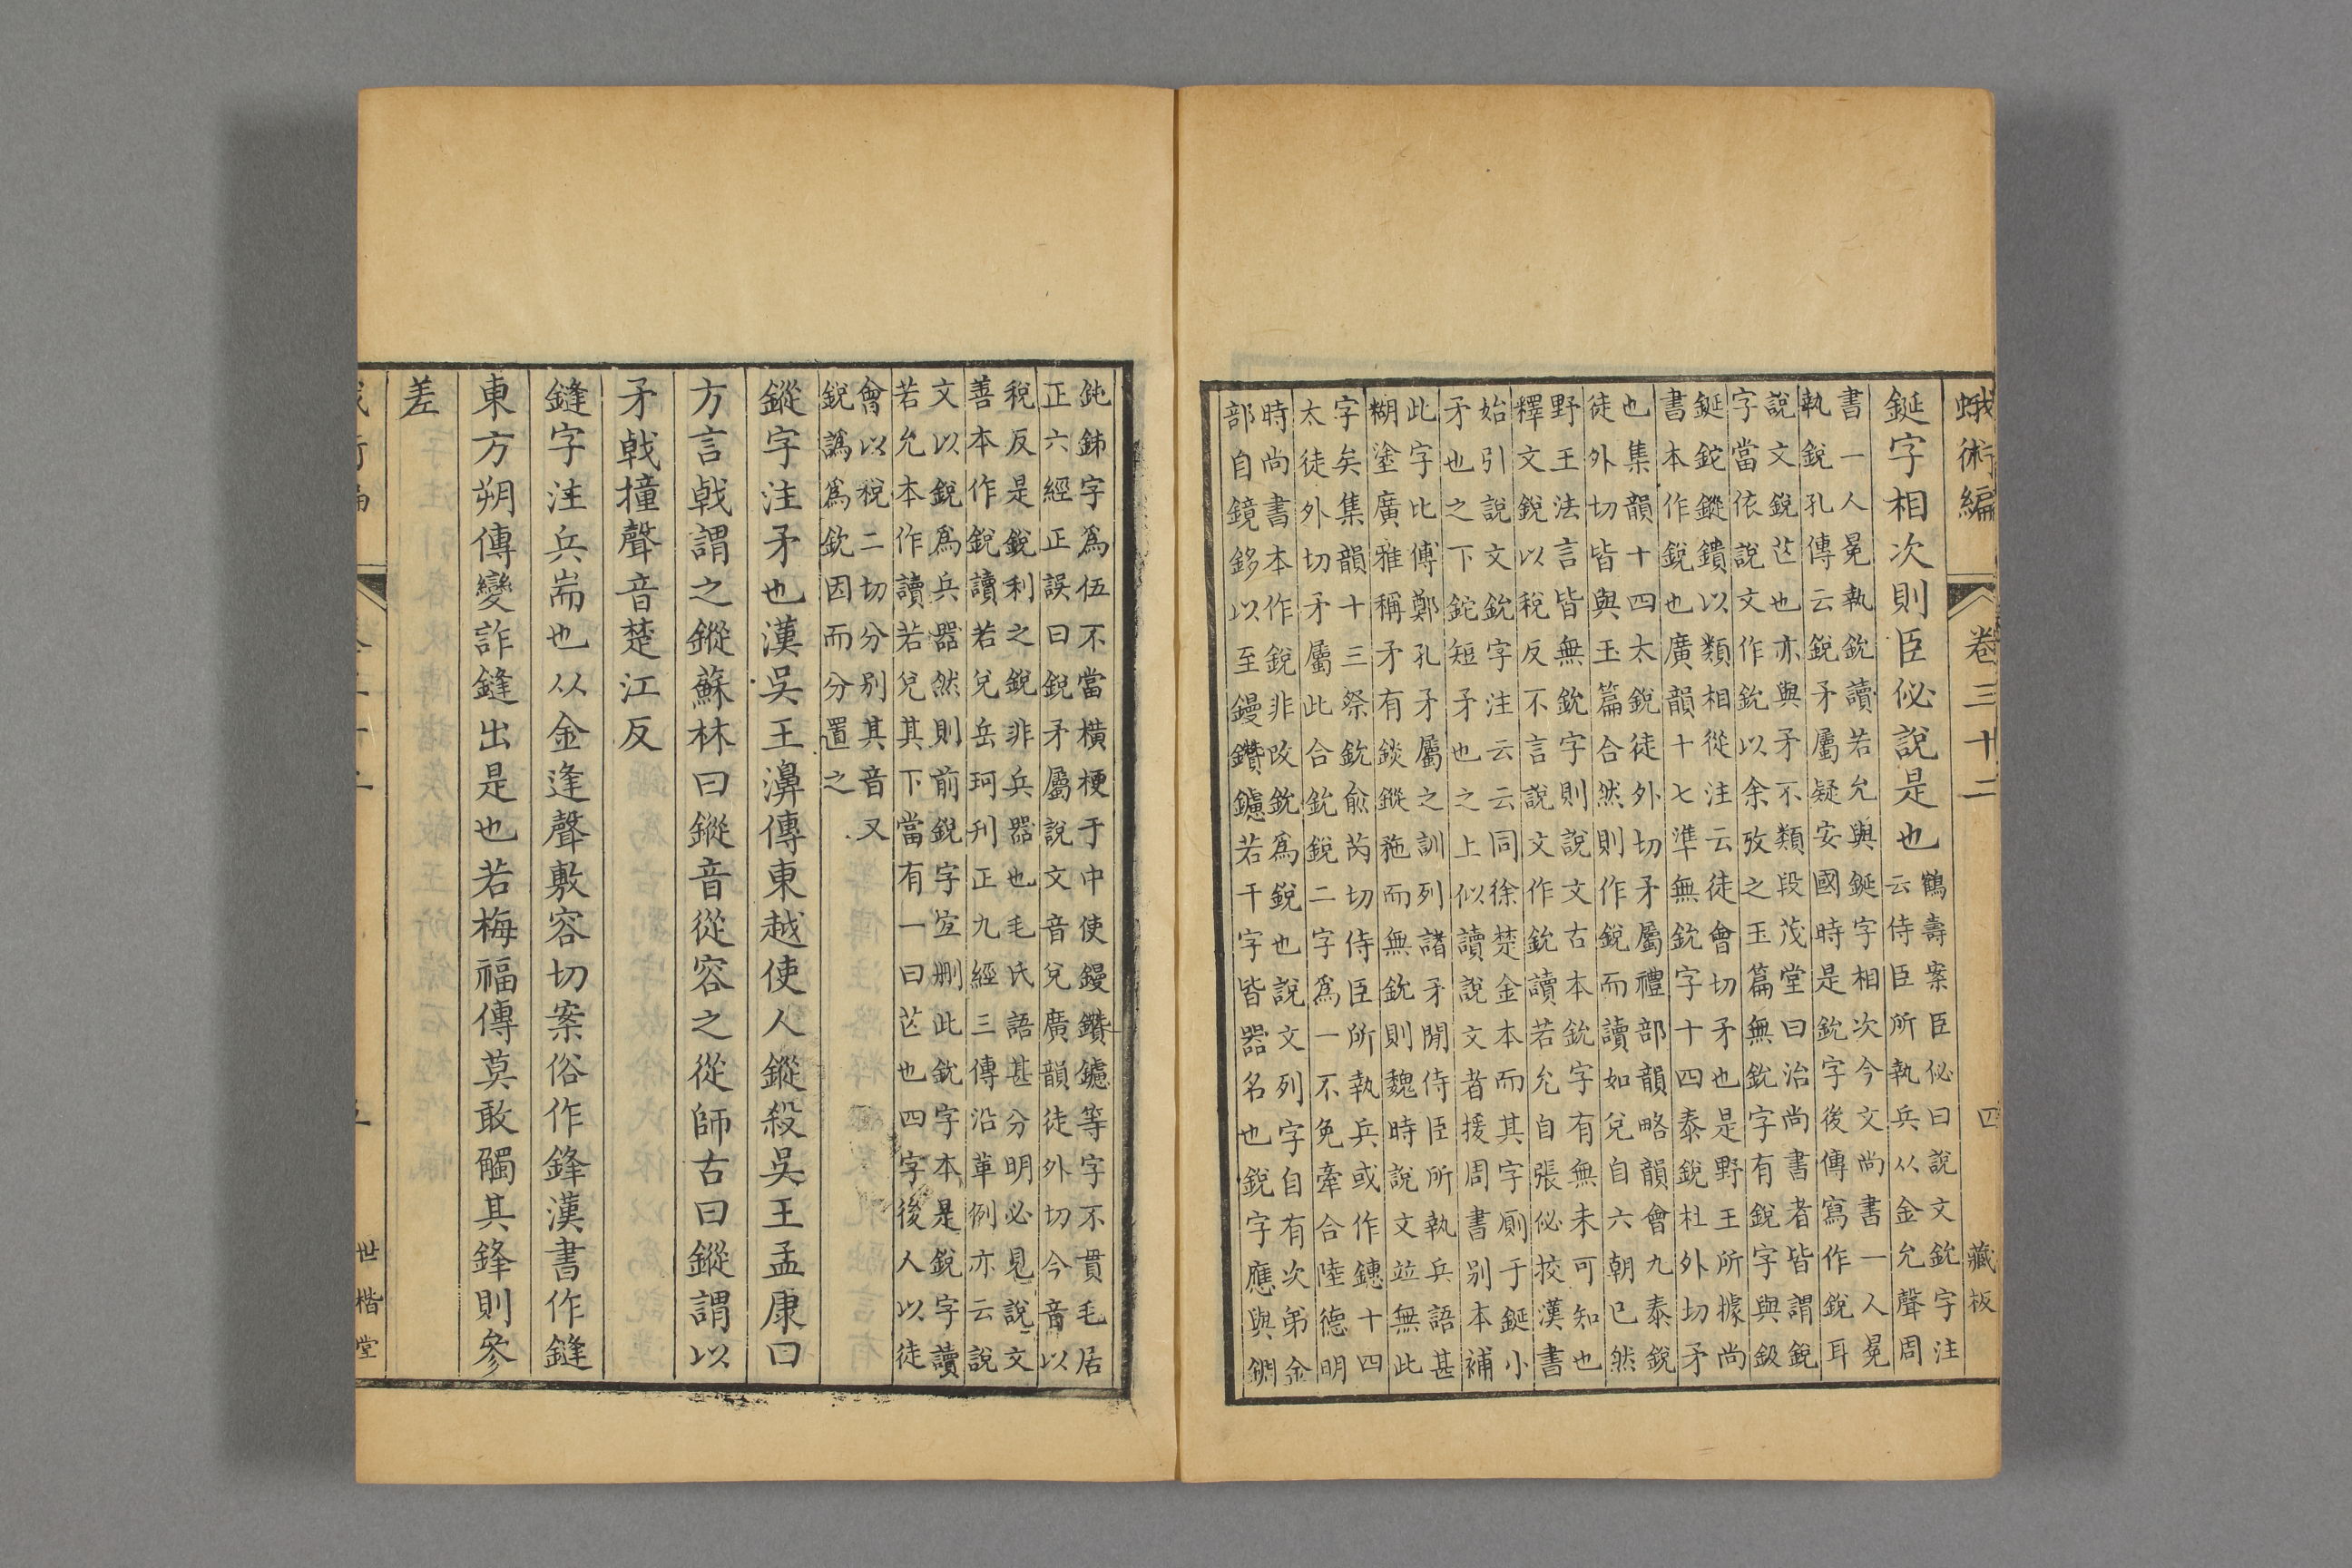 蛾術編 卷三十二 四 藏板
鋋字相次則臣佖說是也
鶴壽案臣佖曰說文鈗字注
云侍臣所執兵从金允聲周
書一人冕執鈗讀若允與鋋字相次今文尚書一人冕
執銳孔傳云銳矛屬疑安國時是鈗字後傳寫作銳耳
說文銳芒也亦與矛不類段茂堂曰治尚書者皆謂銳
字當依說文作鈗以余攷之玉篇無鈗字有銳字與鈒
鋋鉈鏦鐨以類相從注云徒會切矛也是野王所據尚
書本作銳也廣韻十七準無鈗字十四泰銳杜外切矛
也集韻十四太銳徒外切矛屬禮部韻略韻會九泰銳
徒外切皆與玉篇合然則作銳而讀如兌自六朝已然
野王法言皆無鈗字則說文古本鈗字有無未可知也
釋文銳以稅反不言說文作鈗讀若允自張佖挍漢書
始引說文鈗字注云云同徐楚金本而其字廁于鋋小
矛也之下鉈短矛也之上似讀說文者援周書別本補
此字比傅鄭孔矛屬之訓列諸矛閒侍臣所執兵語甚
糊塗廣雅稱矛有錟鏦䂠而無鈗則魏時說文竝無此
字矣集韻十三祭鈗兪芮切侍臣所執兵或作鏸十四
太徒外切矛屬此合鈗銳二字為一不免牽合陸德明
時尚書本作銳非改鈗為銳也說文列字自有次弟金
部自鏡鉹以至鏝鑽鑢若干字皆器名也銳字應與錭
鈍銋字為伍不當橫梗于中使鏝鑽鑢等字不貫毛居
正六經正誤曰銳矛屬說文音兌廣韻徒外切今音以
稅反是銳利之銳非兵器也毛氏語甚分明必見說文
善本作銳讀若兌岳珂刊正九經三傳沿革例亦云說
文以銳為兵器然則前銳字宐刪此鈗字本是銳字讀
若允本作讀若兌其下當有一曰芒也四字後人以徒
會以稅二切分別其音又
銳譌為鈗因而分置之
鏦字注矛也漢吳王濞傳東越使人鏦殺吳王孟康曰
方言戟謂之鏦蘇林曰鏦音從容之從師古曰鏦謂以
矛戟撞聲音楚江反
鏠字注兵耑也从金逢聲敷容切案俗作鋒漢書作鏠
東方朔傳變詐鏠出是也若梅福傳莫敢觸其鋒則參
差
世楷堂